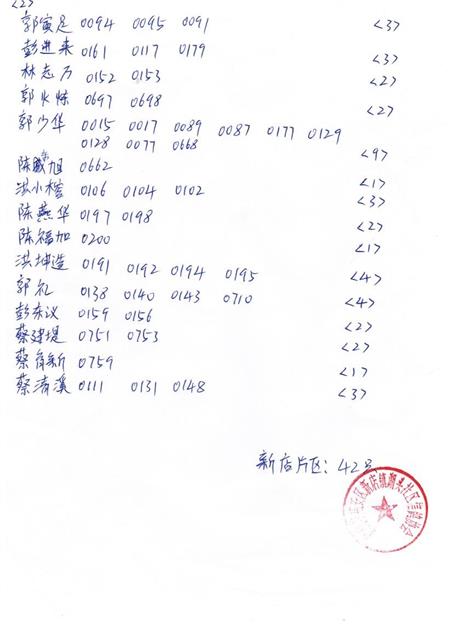 <27
郭寅足 0094 0095 0091 <37
彭进来 0161 0117 0179 <37
林志万 0152 0153 <27
郭火炼 0697 0698 <27
郭少华 0015 0017 0089 0087 0177 0129
0128 0077 0668 <97
旭 0662 <17
洪小 0106 0104 0102 <37
陈燕华 0197 0198 <27
陈福加 0200 <17
洪坤造 0191 0192 0194 0195 <47
郭礼 0138 0140 0143 0710 <47
彭东议 0159 0156 <27
蔡建堤 0751 0753 <27
蔡 0759 <17
蔡清溪 0111 0131 0148 <37
新店片区: 42
区新店镇湖头社区